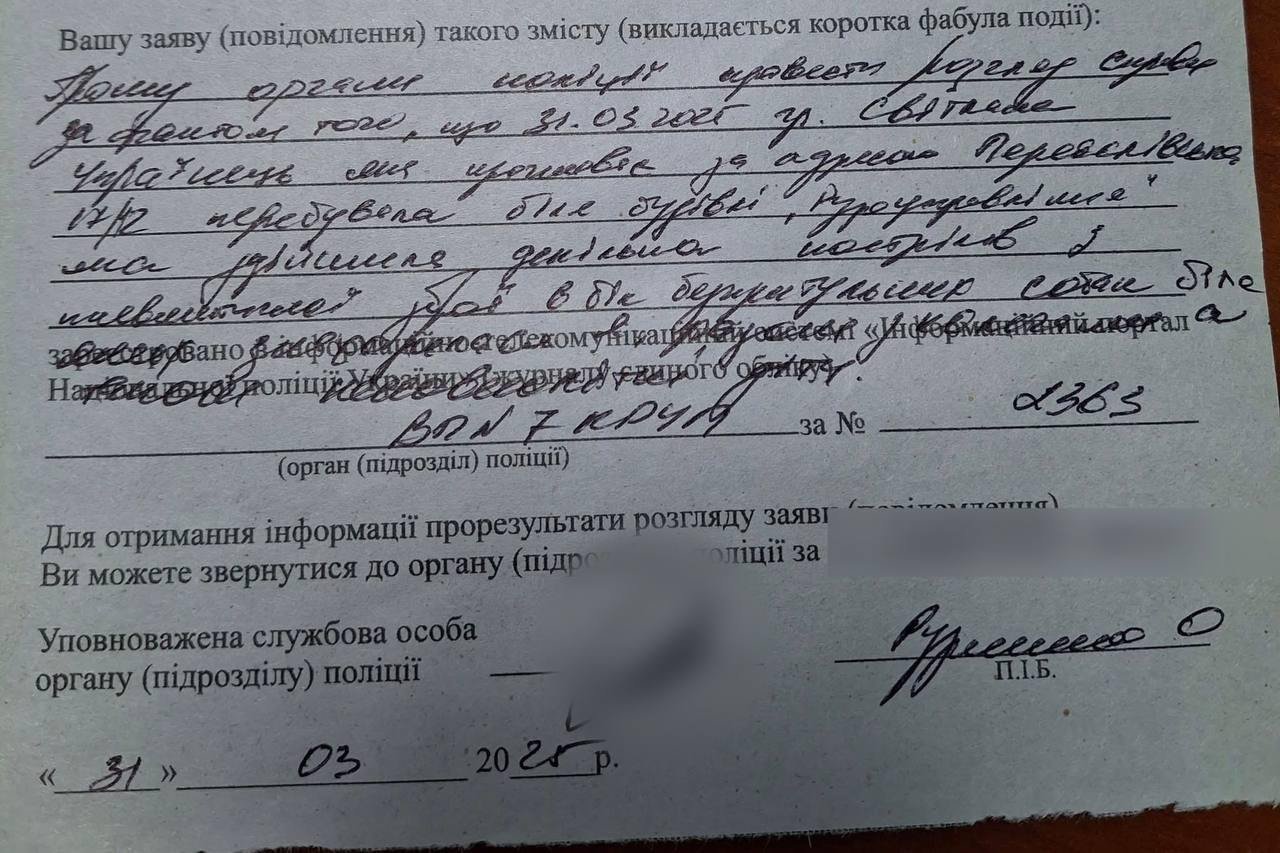 Вашу заяву (повідомлення) такого змісту (викладається коротка фабула події):
Прошу органи поліції провести розгляд справи
за фактом того, що 31.03.2025 гр. Світлана
Українець яка проживає за адресою Переяслівська
17/12 перебувала біля будівлі „Рудоуправління"
яка здійснила декілька пострілів з
пневматичної зброї в бік безпритульних собак біля
зареєстровано в інформаційно-телекомунікаційній системі «Інформаційний портал
Національної поліції України» (журналі єдиного обліку)
ВП N 7 КРУП за № 2363
(орган (підрозділ) поліції)
Для отримання інформації прорезультати розгляду заяви (повідомлення)
Ви можете звернутися до органу поліції за
Уповноважена службова особа
органу (підрозділу) поліції
О
П.І.Б.
« 31 » 03 2025 р.